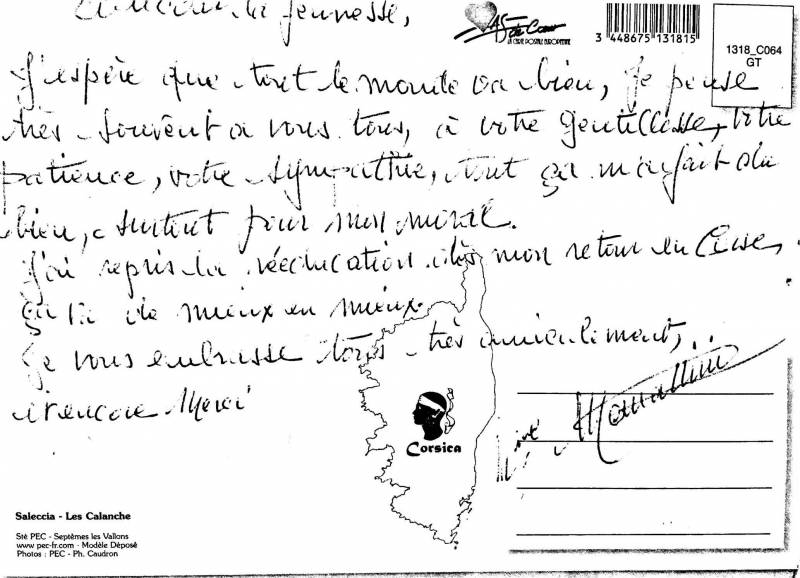 la jeunesse,
AS de Cœur
LA CARTE POSTALE EUROPEENNE
3 448675 131815
1318_C064
GT
J'espère que tout le monde va bien, je pense
très souvent a vous tous, à votre gentillesse, votre
patience, votre sympathie, tout ça m'a fait du
bien, surtout pour mon moral.
J'ai repris la rééducation dès mon retour en Corse,
ça va de mieux en mieux.
Je vous embrasse tous très amicalement,
et encore Merci
Corsica
Saleccia - Les Calanche
Sté PEC - Septèmes les Vallons
www.pec-fr.com - Modèle Déposé
Photos : PEC - Ph. Caudron